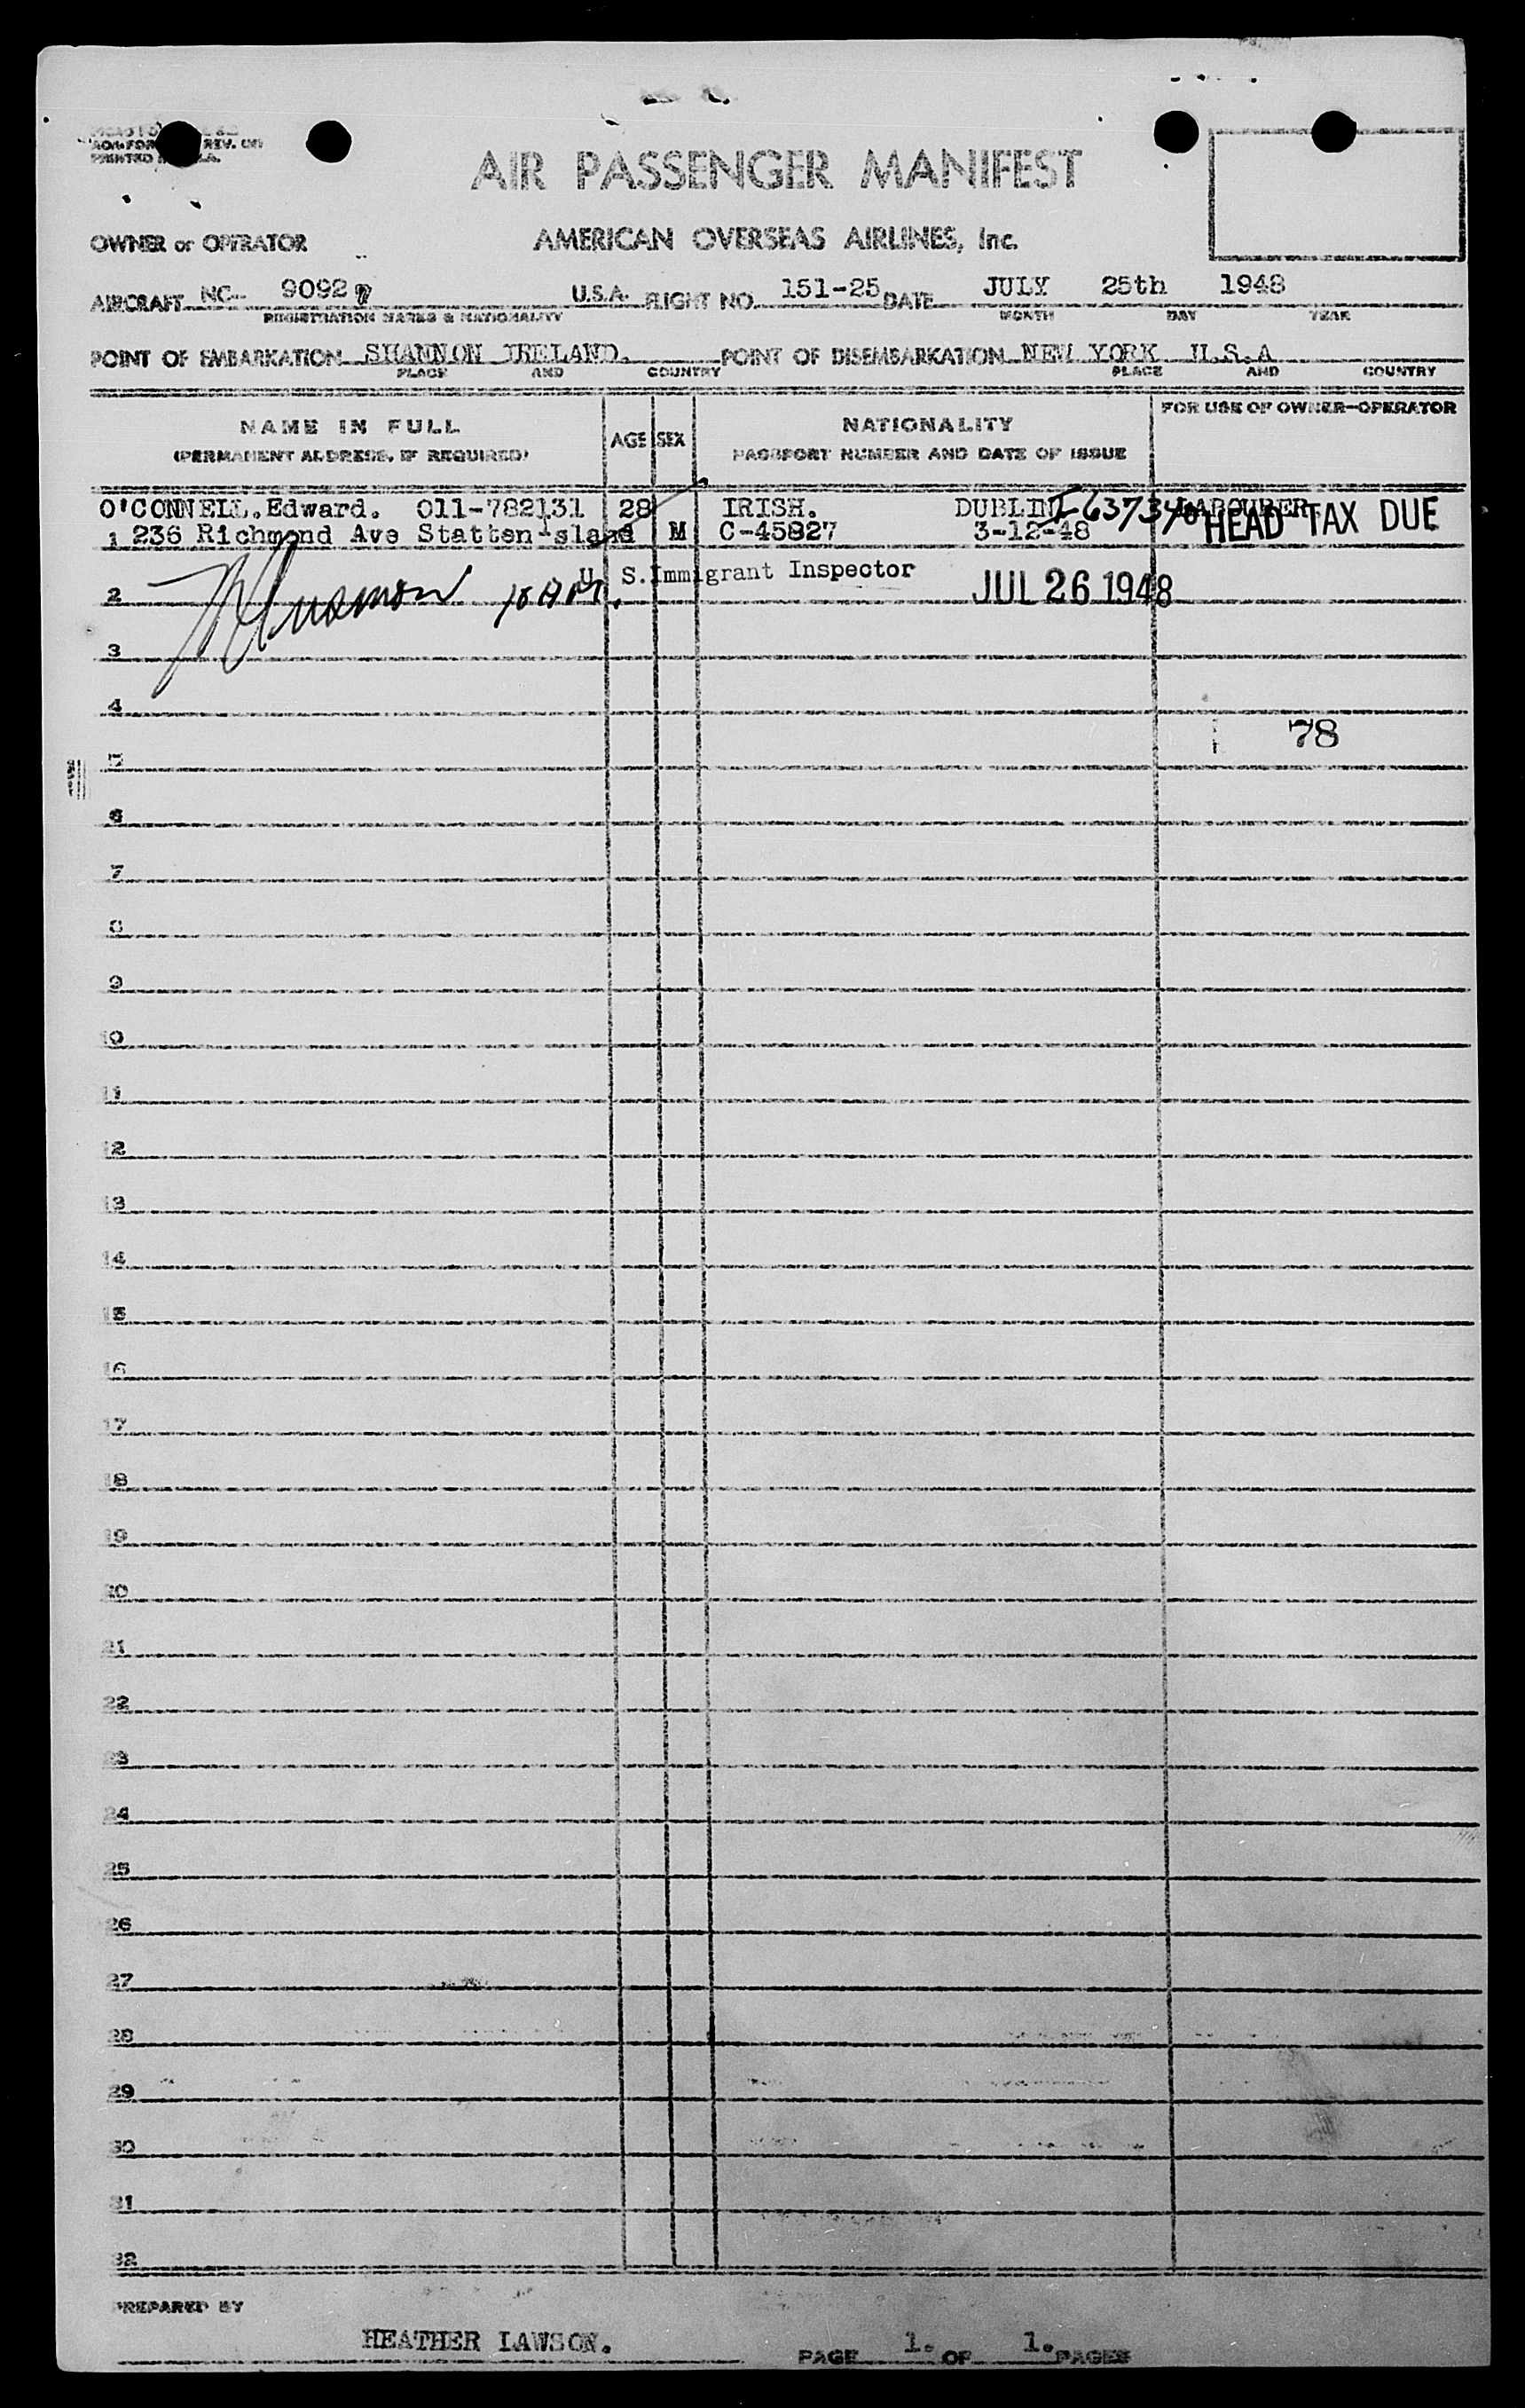 AIR PASSENGER MANIFEST
OWNER or OPERATOR AMERICAN OVERSEAS AIRLINES, Inc.
AIRCRAFT NC- 90927 U.S.A. FLIGHT NO. 151-25 DATE JULY 25th 1948
REGISTRATION MARKS & NATIONALITY MONTH DAY YEAR
POINT OF EMBARKATION SHANNON IRELAND. POINT OF DISEMBARKATION NEW YORK U.S.A
PLACE AND COUNTRY PLACE AND COUNTRY
NAME IN FULL AGE SEX NATIONALITY FOR USE OF OWNER-OPERATOR
(PERMANENT ADDRESS, IF REQUIRED) PASSPORT NUMBER AND DATE OF ISSUE
O'CONNELL.Edward. 011-782131 28 IRISH. DUBLIN I-637340 LABOURER
1 236 Richmond Ave Statten Island M C-45827 3-12-48 HEAD TAX DUE
U. S. Immigrant Inspector
2 10 AM. JUL 26 1948
3
4
78
5
6
7
8
9
10
11
12
13
14
15
16
17
18
19
20
21
22
23
24
25
26
27
28
29
30
31
32
PREPARED BY
HEATHER LAWSON. PAGE 1. OF 1. PAGES